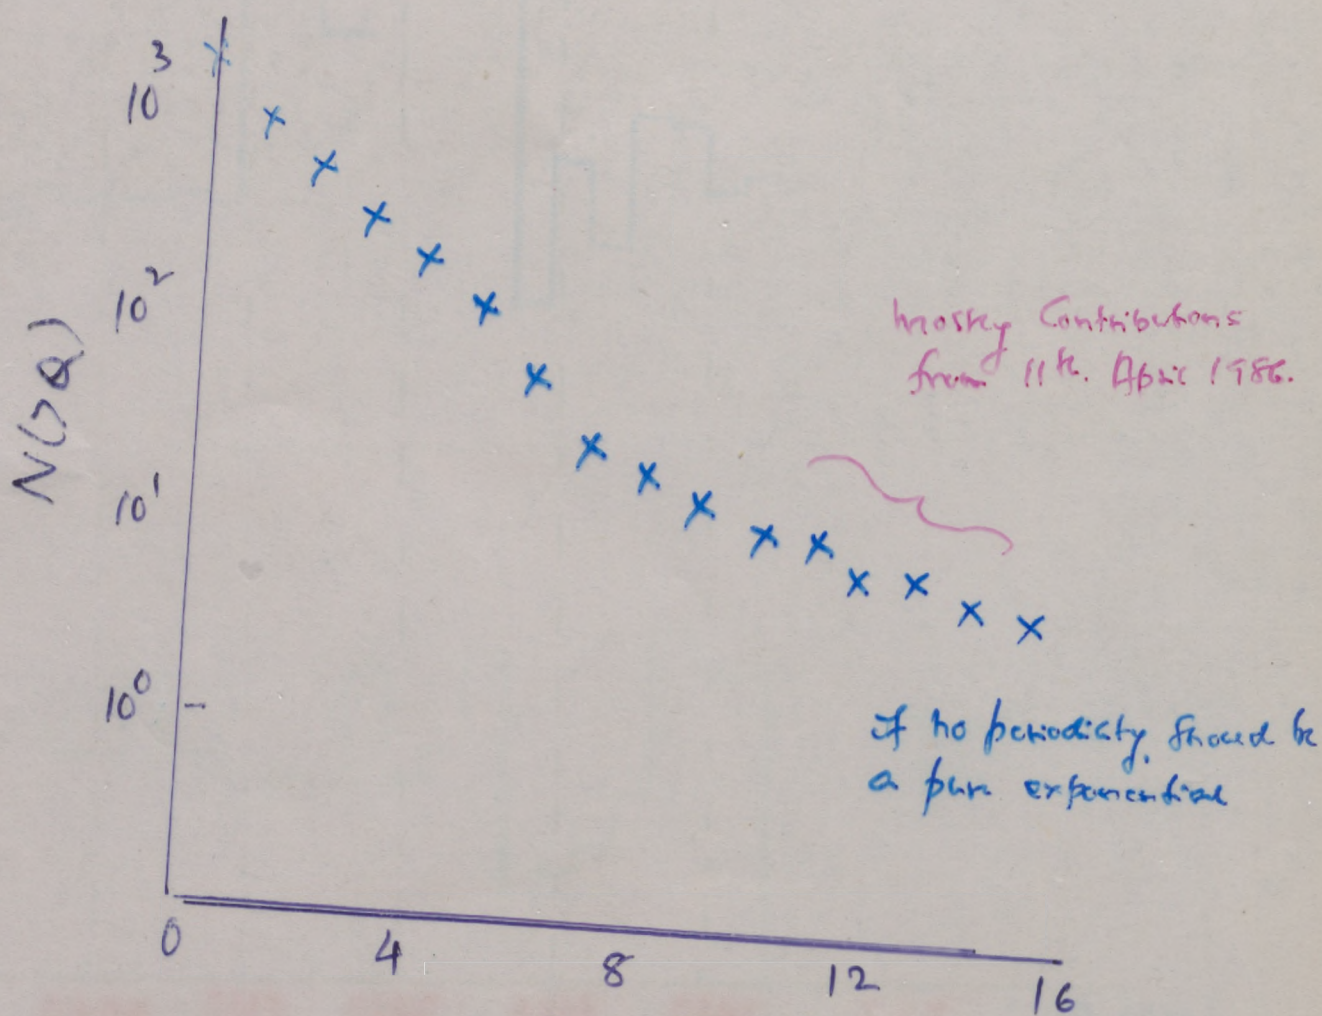 10³
10²
10¹
10⁰
N(>Q)
Mostly Contributions
from 11th. April 1986.
if no periodicity, should be
a pure exponential
0 4 8 12 16